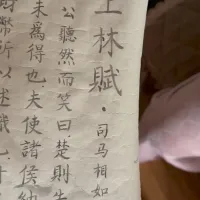 上林賦·司马相如
公聽然而笑曰.楚則
未為得也.夫使諸侯納
幣所以述職也